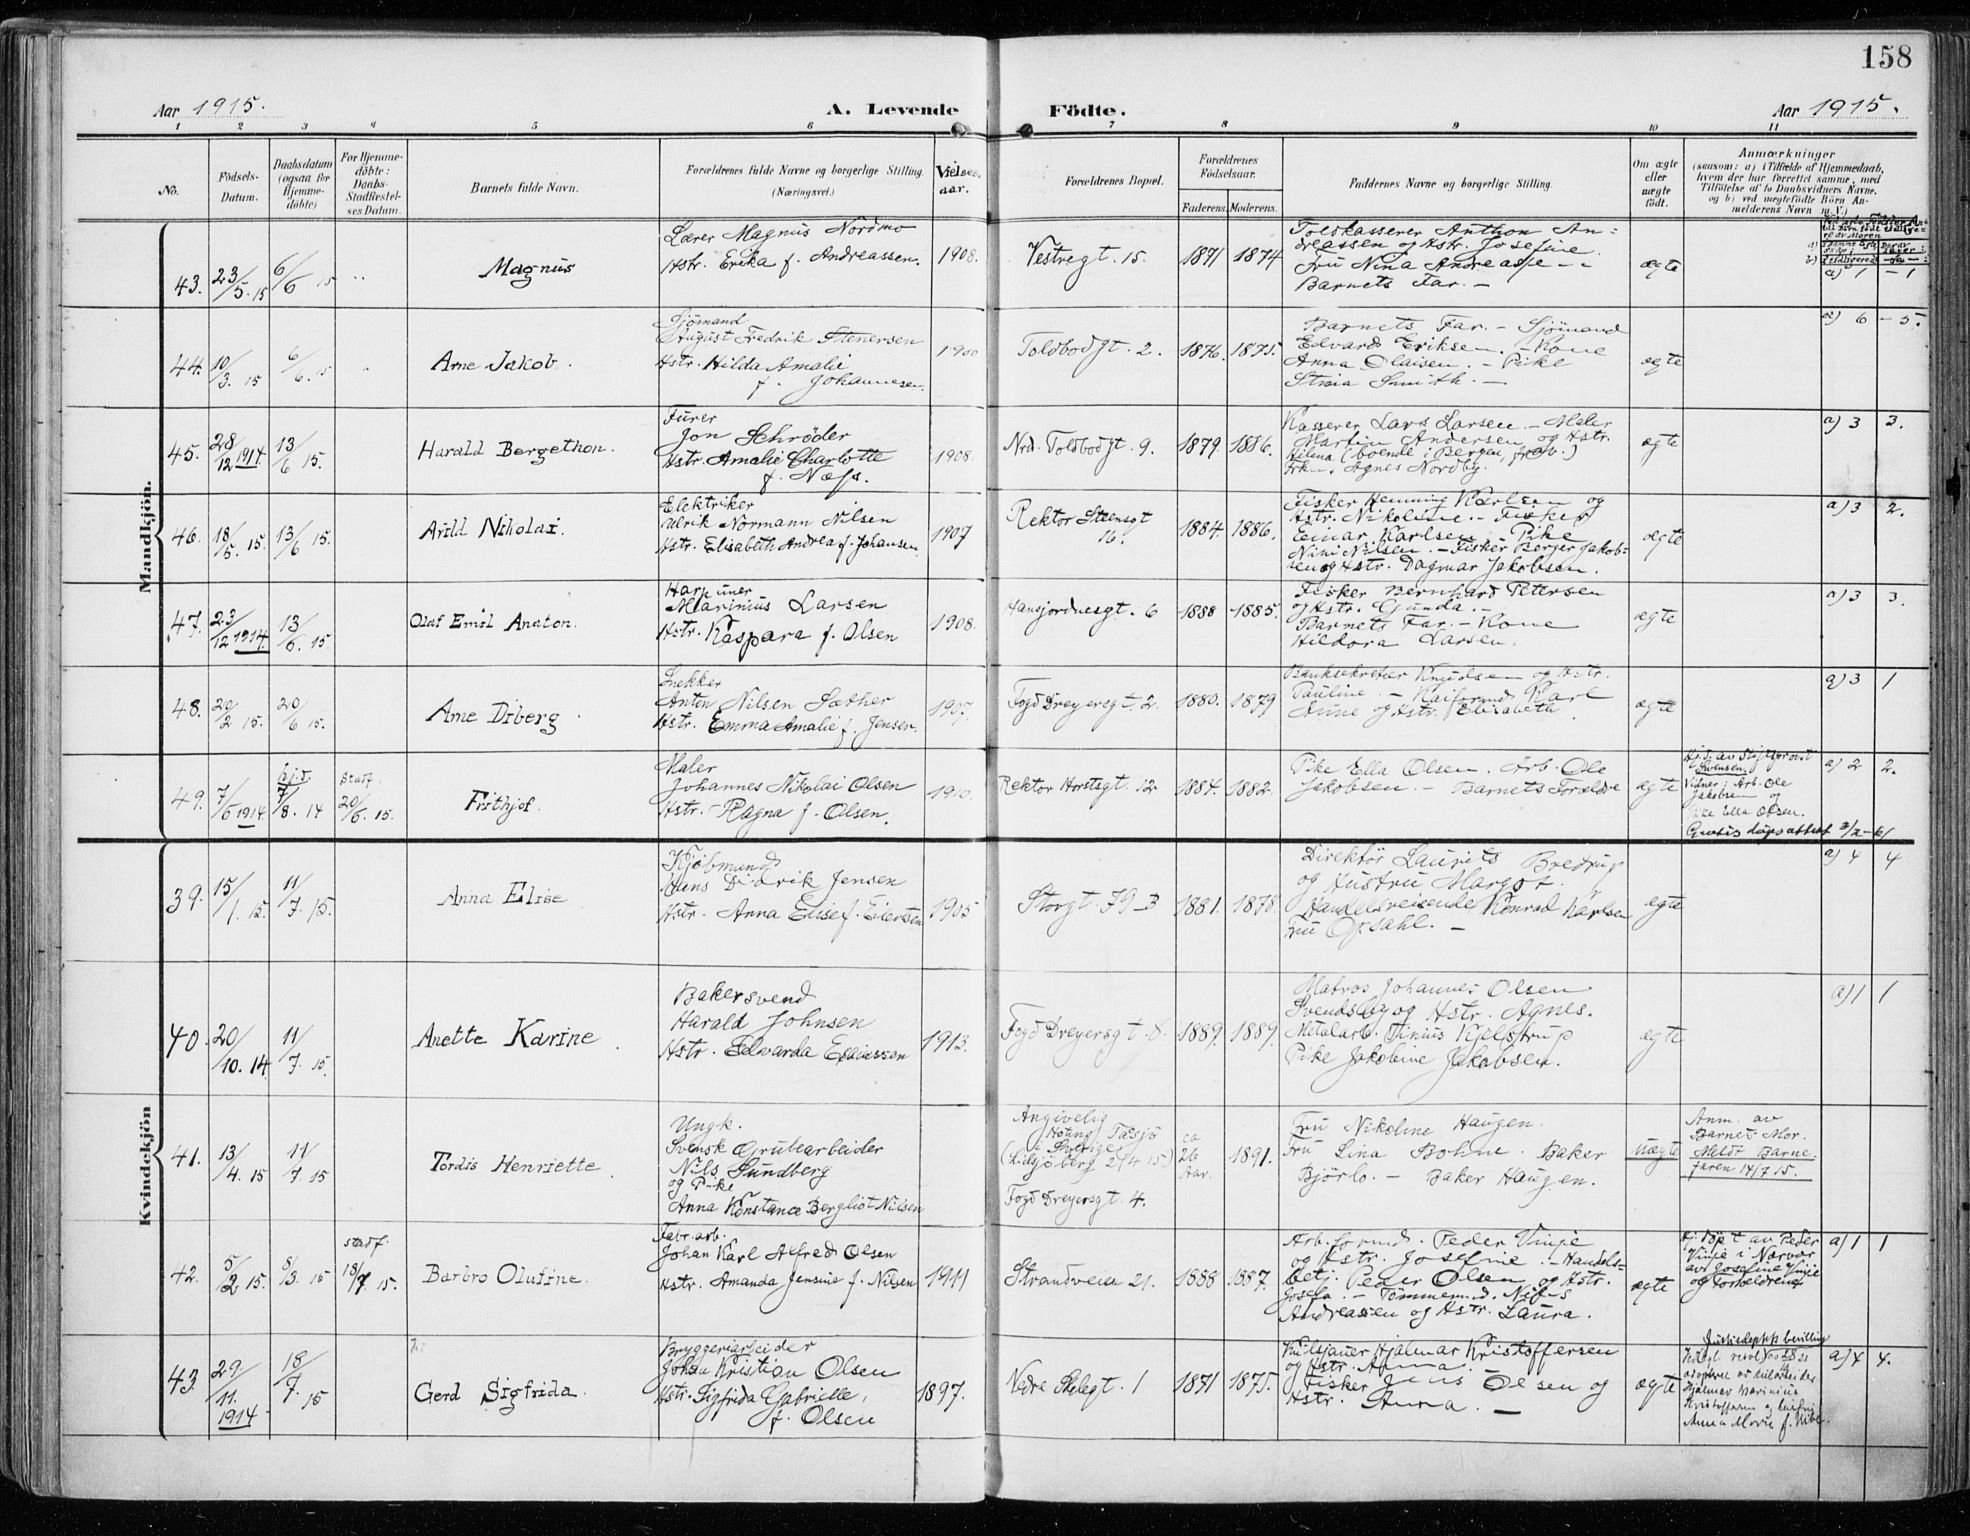 158
Aar 1915.
A. Levende
Födte.
Aar 1915.
1 2 3 4 5 6 7 8 9 10 11
No.
Födsels-
Datum.
Daabsdatum
(ogsaa for
Hjemme-
døbte)
For Hjemme-
døbte:
Daabs-
Stadfæstel-
ses Datum.
Barnets fulde Navn.
Forældrenes fulde Navne og borgerlige Stilling.
(Næringsvei.)
Vielses-
aar.
Forældrenes Bopæl.
Forældrenes
Födselsaar.
Faderens. Moderens.
Faddernes Navne og borgerlige Stilling.
Om ægte
eller
uægte
födt.
Anmærkninger
(saasom: a) i Tilfælde af Hjemmedaab,
hvem der har forrettet samme, med
Tilföielse af to Daabsvidners Navne,
og b) ved uægtefödte Börn An-
melderens Navn m. V.)
Mandkjön.
43. 23/5. 15 6/6 15 " Magnus
Lærer Magnus Nordmo
Hstr. Erika f. Andreassen.
1908. Vestregt. 15. 1871 1874
Toldkasserer Anthon An-
dreassen og Hstr. Josefine.
Fru Nina Andreasse -
Barnets Far. -
ægte
a) 1 - 1
44. 10/3. 15 6/6. 15 " Arne Jakob.
Sjömand
August Fredrik Stenersen
Hstr. Hilda Amalie
f. Johannesen.
1900 Toldbodgt. 2. 1876. 1875.
Barnets Far. - Sjömand
Edvard Eriksen. - Kone
Anna Olaisen. - Pike
Smith. -
ægte
a) 6 - 5.
45. 28/12 1914. 13/6 15. Harald Bergethon.
Furer
Jon Schröder
Hstr. Amalie Charlotte
f. Næss.
1908. Nrd. Toldbodgt. 9. 1879. 1886.
Kasserer Lars Larsen - Maler
Martin Andersen og Hstr.
Hilma (boende i Bergen, frav.)
Frkn. Agnes Nordby.
ægte
a) 3 3.
46. 18/5. 15. 13/6 15. Arild Nikolai.
Elektriker
Ulrik Normann Nilsen
Hstr. Elisabeth Andrea f. Johansen
1907 Rektor Steensgt
16. 1884. 1886.
Fisker Henning Karlsen og
Hstr. Nikoline. - Fisker
Einar Karlsen. Pike
Nini Nilsen. - Fisker Berger Jakob-
sen og Hstr. Dagmar Jakobsen.
ægte
a) 3 2.
47. 23/12 1914. 13/6. 15. Olaf Emil Anaton.
Harpuner
Marinius Larsen
Hstr. Kaspara f. Olsen
1908. Hansjordnesgt. 6 1888 1885.
Fisker Bernhard Pettersen
og Hstr. Gunda. -
Barnets Far. - Kone
Hildora Larsen.
ægte
a) 3 3.
48. 20/2 15. 20/6 15. Arne Diberg.
Snekker
Anton Nilsen Sæther
Hstr. Emma Amalie f. Jensen.
1907. Fogd Dreyersgt. 2. 1880. 1879
Banksekretær Knudsen og Hstr.
Pauline - Kaiformd. Karl
Aune og Hstr. Elisabeth.
ægte
a) 3 1
49. 7/6 1914. hj.d. 7/8. 14 Stadf. 20/6. 15. Frithjof.
Maler
Johannes Nikolai Olsen
Hstr. Ragna f. Olsen.
1910. Rektor Horstsgt. 12 1884. 1882.
Pike Ella Olsen. Arb. Ole
Jakobsen. - Barnets Forældre
ægte
Hj.d. av Stiftsprovst
Svensen.
Vidner: Arb. Ole
Jakobsen og
Pike Ella Olsen.
a) 2 2.
Kvindekjön
39. 15/1. 15. 11/7. 15. Anna Elise
Kjöbmand
Hans Didrik Jensen
Hstr. Anna Elise f. Eilertsen
1905 Storgt. 79-3 1881. 1878.
Direktör Laurits Bredrup
og Hustru Margot.
Handelsreisende Konrad Karlsen
Fru Opsahl. -
ægte
a) 4 4
40. 20/10. 14. 11/7. 15. Anette Karine.
Bakersvend
Harald Johnsen
Hstr. Edvarda Esaiessen
1913. Fogd Dreyersgt. 8. 1889. 1889.
Matros Johannes Olsen
Svendsby og Hstr. Agnes.
Metalarb. Tinius Kjelstrup
Pike Jakobine Jakobsen.
ægte
a) 1 1
41. 13/4. 15 11/7 15 Tordis Henriette.
Ungk.
Svensk Grubearbeider
Nils Sundberg
og Pike
Anna Konstance Bergliot Nilsen
Angivelig
Hoting Tåsjö
i Sverige
(Lidsjöberg 2/4 15)
Fogd Dreyersgt. 4.
ca
26
Aar. 1891.
Fru Nikoline Haugen.
Fru Lina Bohne. Baker
Björlo. - Baker Haugen.
uægte
Anm. av
Barnets Mor.
Meldt Barne-
faren 14/7 15.
42. 5/2 15. 8/3. 15 stadf. 18/7. 15. Barbro Olufine.
Fabr. arb.
Johan Karl Alfred Olsen
Hstr. Amanda Jensine f. Nilsen
1911 Strandveien 21. 1888 1887.
Arb. formd. Peder Vinje
og Hstr. Josefine. - Handels-
betj. Peder Olsen og Hstr.
Josefa. - Tömmermd. Nils
Andreassen og Hstr. Laura.
ægte
Hj. döpt av Peder
Vinje i Nærvær
av Josefine Vinje
og Forældrene
a) 1 1
43. 29/11. 1914 18/7. 15 Gerd Sigfrida.
Bryggeriarbeider
Johan Kristian Olsen
Hstr. Sigfrida Gabrielle,
f. Olsen
1897. Nedre Skolegt. 1 1871 1875.
Kulsjauer Hjalmar Kristoffersen
og Hstr. Anna. -
Fisker Jens Olsen og
Hstr. Anna. -
ægte
Justisdepts bevilling
Hjalmar Marinius
Kristoffersen og hustru
Anna Marie f.
a) 4 4.